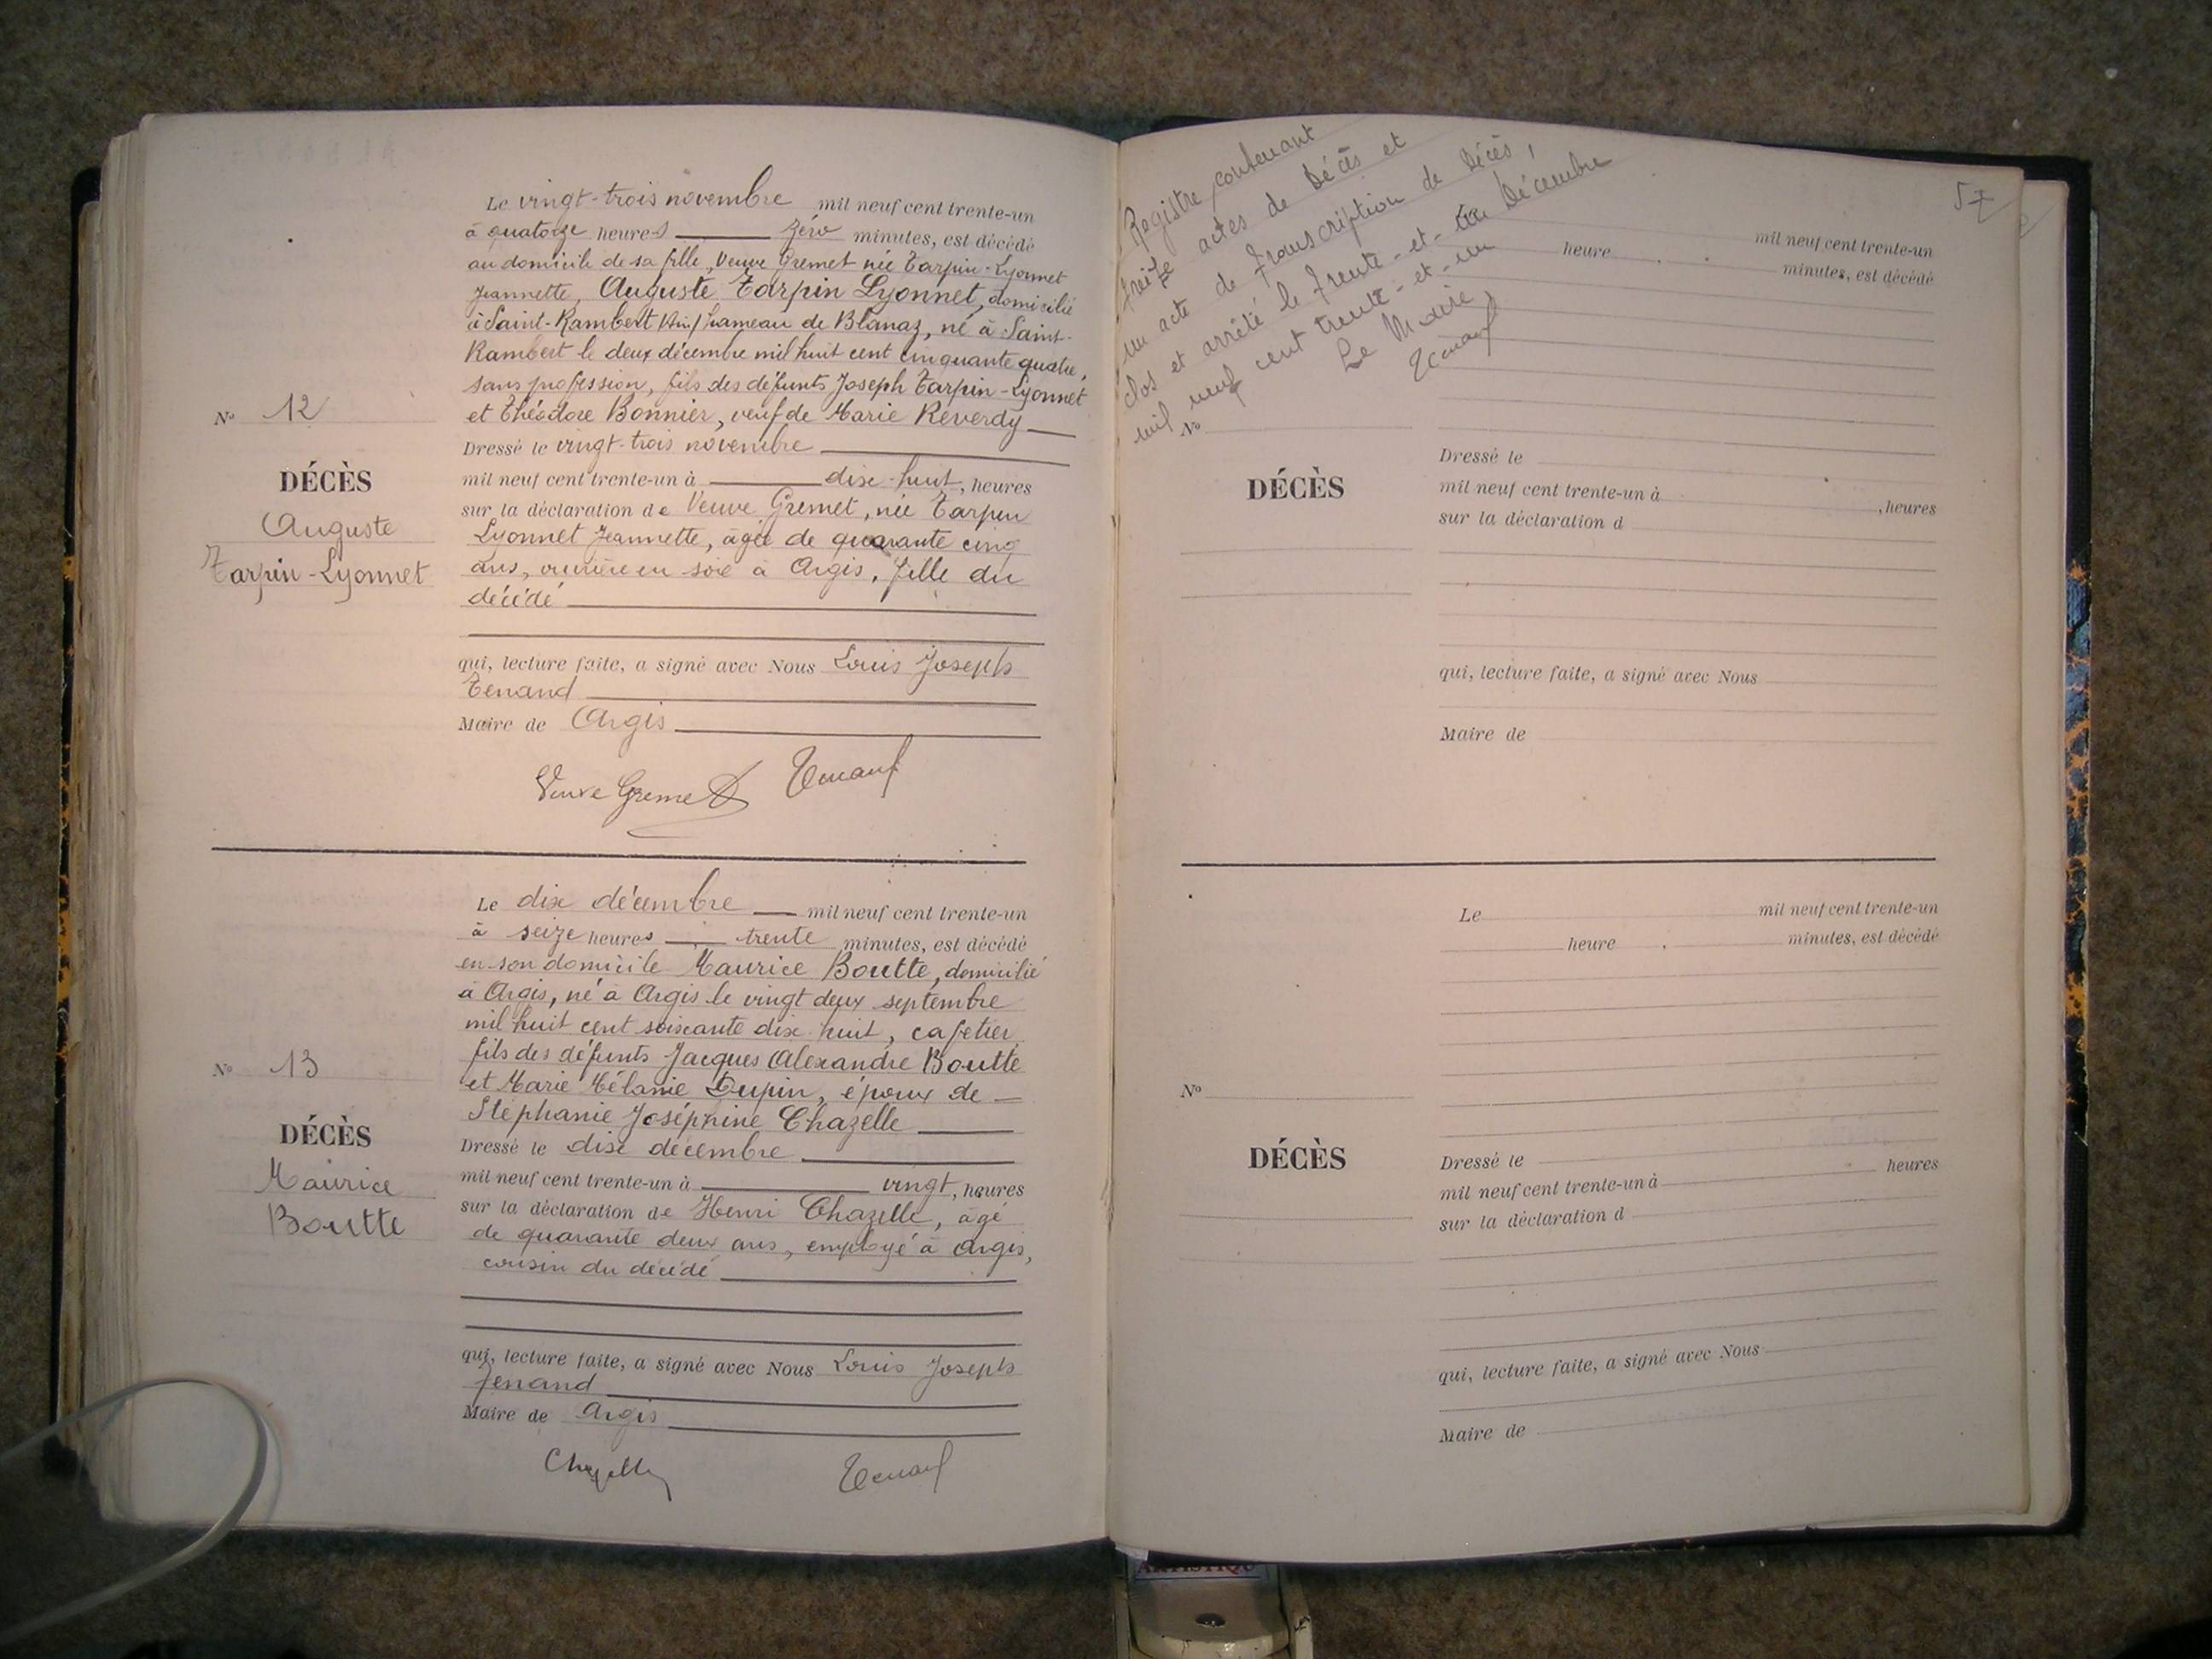 Le vingt-trois novembre mil neuf cent trente-un
à quatorze heures zéro minutes, est décédé
au domicile de sa fille, Veuve Gremet née Tarpin-Lyonnet
Jeannette, Auguste Tarpin Lyonnet, domicilié
à Saint-Rambert Ain, hameau de Blanaz, né à Saint-
Rambert le deux décembre mil huit cent cinquante quatre,
sans profession, fils des défunts Joseph Tarpin-Lyonnet
et Théodore Bonnier, veuf de Marie Reverdy
Dressé le vingt-trois novembre
mil neuf cent trente-un à dix-huit, heures
sur la déclaration de Veuve Gremet, née Tarpin
Lyonnet Jeannette, âgée de quarante cinq
ans, ouvrière en soie à Argis, fille du
décédé
qui, lecture faite, a signé avec Nous Louis Joseph
Tenand
Maire de Argis
Veuve Gremet Tenand
N° 12
DÉCÈS
Auguste
Tarpin-Lyonnet
Le dix décembre mil neuf cent trente-un
à seize heures trente minutes, est décédé
en son domicile Maurice Boutte, domicilié
à Argis, né à Argis le vingt deux septembre
mil huit cent soixante dix-huit, cafetier,
fils des défunts Jacques Alexandre Boutte
et Marie Mélanie Dupin, époux de
Stéphanie Joséphine Chazelle
Dressé le dix décembre
mil neuf cent trente-un à vingt, heures
sur la déclaration de Henri Chazelle, âgé
de quarante deux ans, employé à Argis,
cousin du décédé
qui, lecture faite, a signé avec Nous Louis Joseph
Tenand
Maire de Argis
Chazelle Tenand
N° 13
DÉCÈS
Maurice
Boutte
57
Registre contenant
treize actes de Décès et
un acte de transcription de Décès,
clos et arrêté le trente-et-un Décembre
mil neuf cent trente-et-un
Le Maire,
Tenand
mil neuf cent trente-un
heure minutes, est décédé
N°
DÉCÈS
Dressé le
mil neuf cent trente-un à , heures
sur la déclaration d
qui, lecture faite, a signé avec Nous
Maire de
Le mil neuf cent trente-un
heure minutes, est décédé
N°
DÉCÈS
Dressé le
mil neuf cent trente-un à heures
sur la déclaration d
qui, lecture faite, a signé avec Nous
Maire de